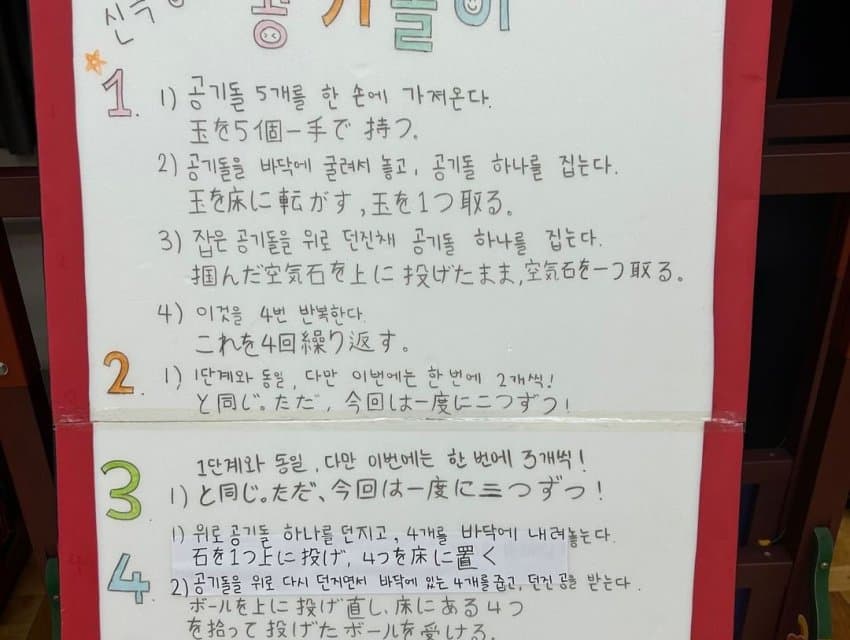 공기놀이
1.
1) 공기돌 5개를 한 손에 가져온다.
玉を5個一手で 持つ.
2) 공기돌을 바닥에 굴려서 놓고, 공기돌 하나를 집는다.
玉を床に転がす, 玉を1つ取る。
3) 잡은 공기돌을 위로 던진채 공기돌 하나를 집는다.
掴んだ空気石を上に投げたまま, 空気石を一つ取る。
4) 이것을 4번 반복한다.
これを4回繰り返す。
2.
1) 1단계와 동일, 다만 이번에는 한 번에 2개씩!
と同じ。ただ, 今回は一度に二つずつ!
3
1단계와 동일, 다만 이번에는 한 번에 3개씩!
1) と同じ。ただ、今回は一度に三つずつ!
4
1) 위로 공기돌 하나를 던지고, 4개를 바닥에 내려놓는다.
石を1つ上に投げ, 4つを床に置く
2) 공기돌을 위로 다시 던지면서 바닥에 있는 4개를 줍고, 던진 공을 받는다.
ボールを上に投げ直し、床にある4つ
を拾って投げたボールを受ける。